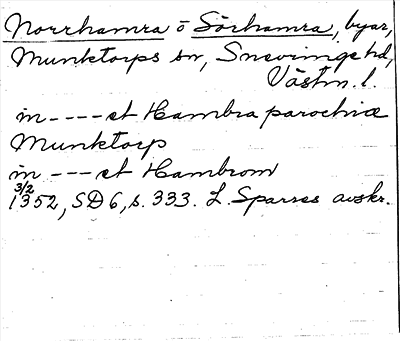 Norrhamra o Sörhamra, byar,
Munktorps sn, Snevringe hd,
Västm. l.
in ---- et Hambra parochiæ
Munktorp
in --- et Hambrom
3/2
1352, SD 6, s. 333. L. Sparres avskr.